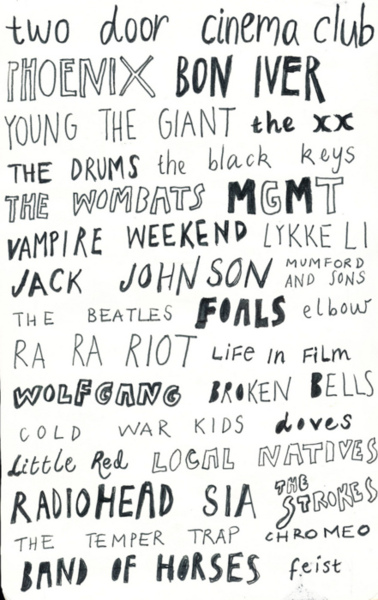 two door cinema club
PHOENIX BON IVER
YOUNG THE GIANT the xx
THE DRUMS the black keys
THE WOMBATS MGMT
VAMPIRE WEEKEND LYKKE LI
JACK JOHNSON MUMFORD AND SONS
THE BEATLES FOALS elbow
RA RA RIOT LiFE iN FiLM
WOLFGANG BROKEN BELLS
COLD WAR KIDS doves
Little Red LOCAL NATIVES
RADIOHEAD SIA THE STROKES
THE TEMPER TRAP CHROMEO
BAND OF HORSES feist